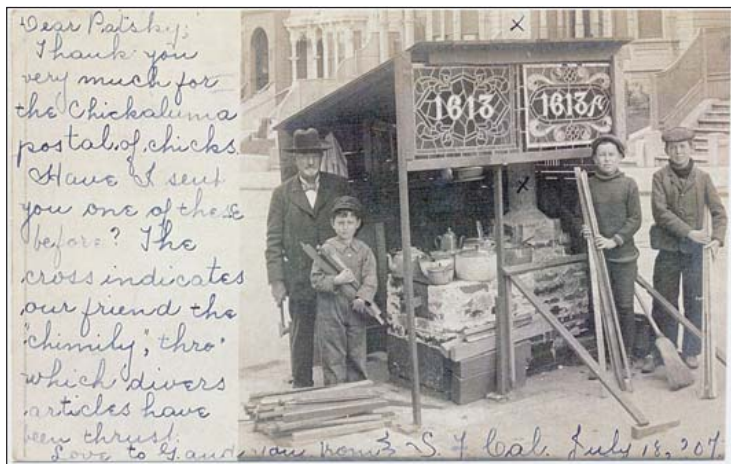 Dear Patsky;
Thank you
very much for
the Chickaluma
postal of chicks.
Have I sent
you one of these
before? The
cross indicates
our friend the
"chimily", thro'
which divers
articles have
been thrust.
Love to G. and you from S. F. Cal. July 18, '07.
X
1613
1613A
X